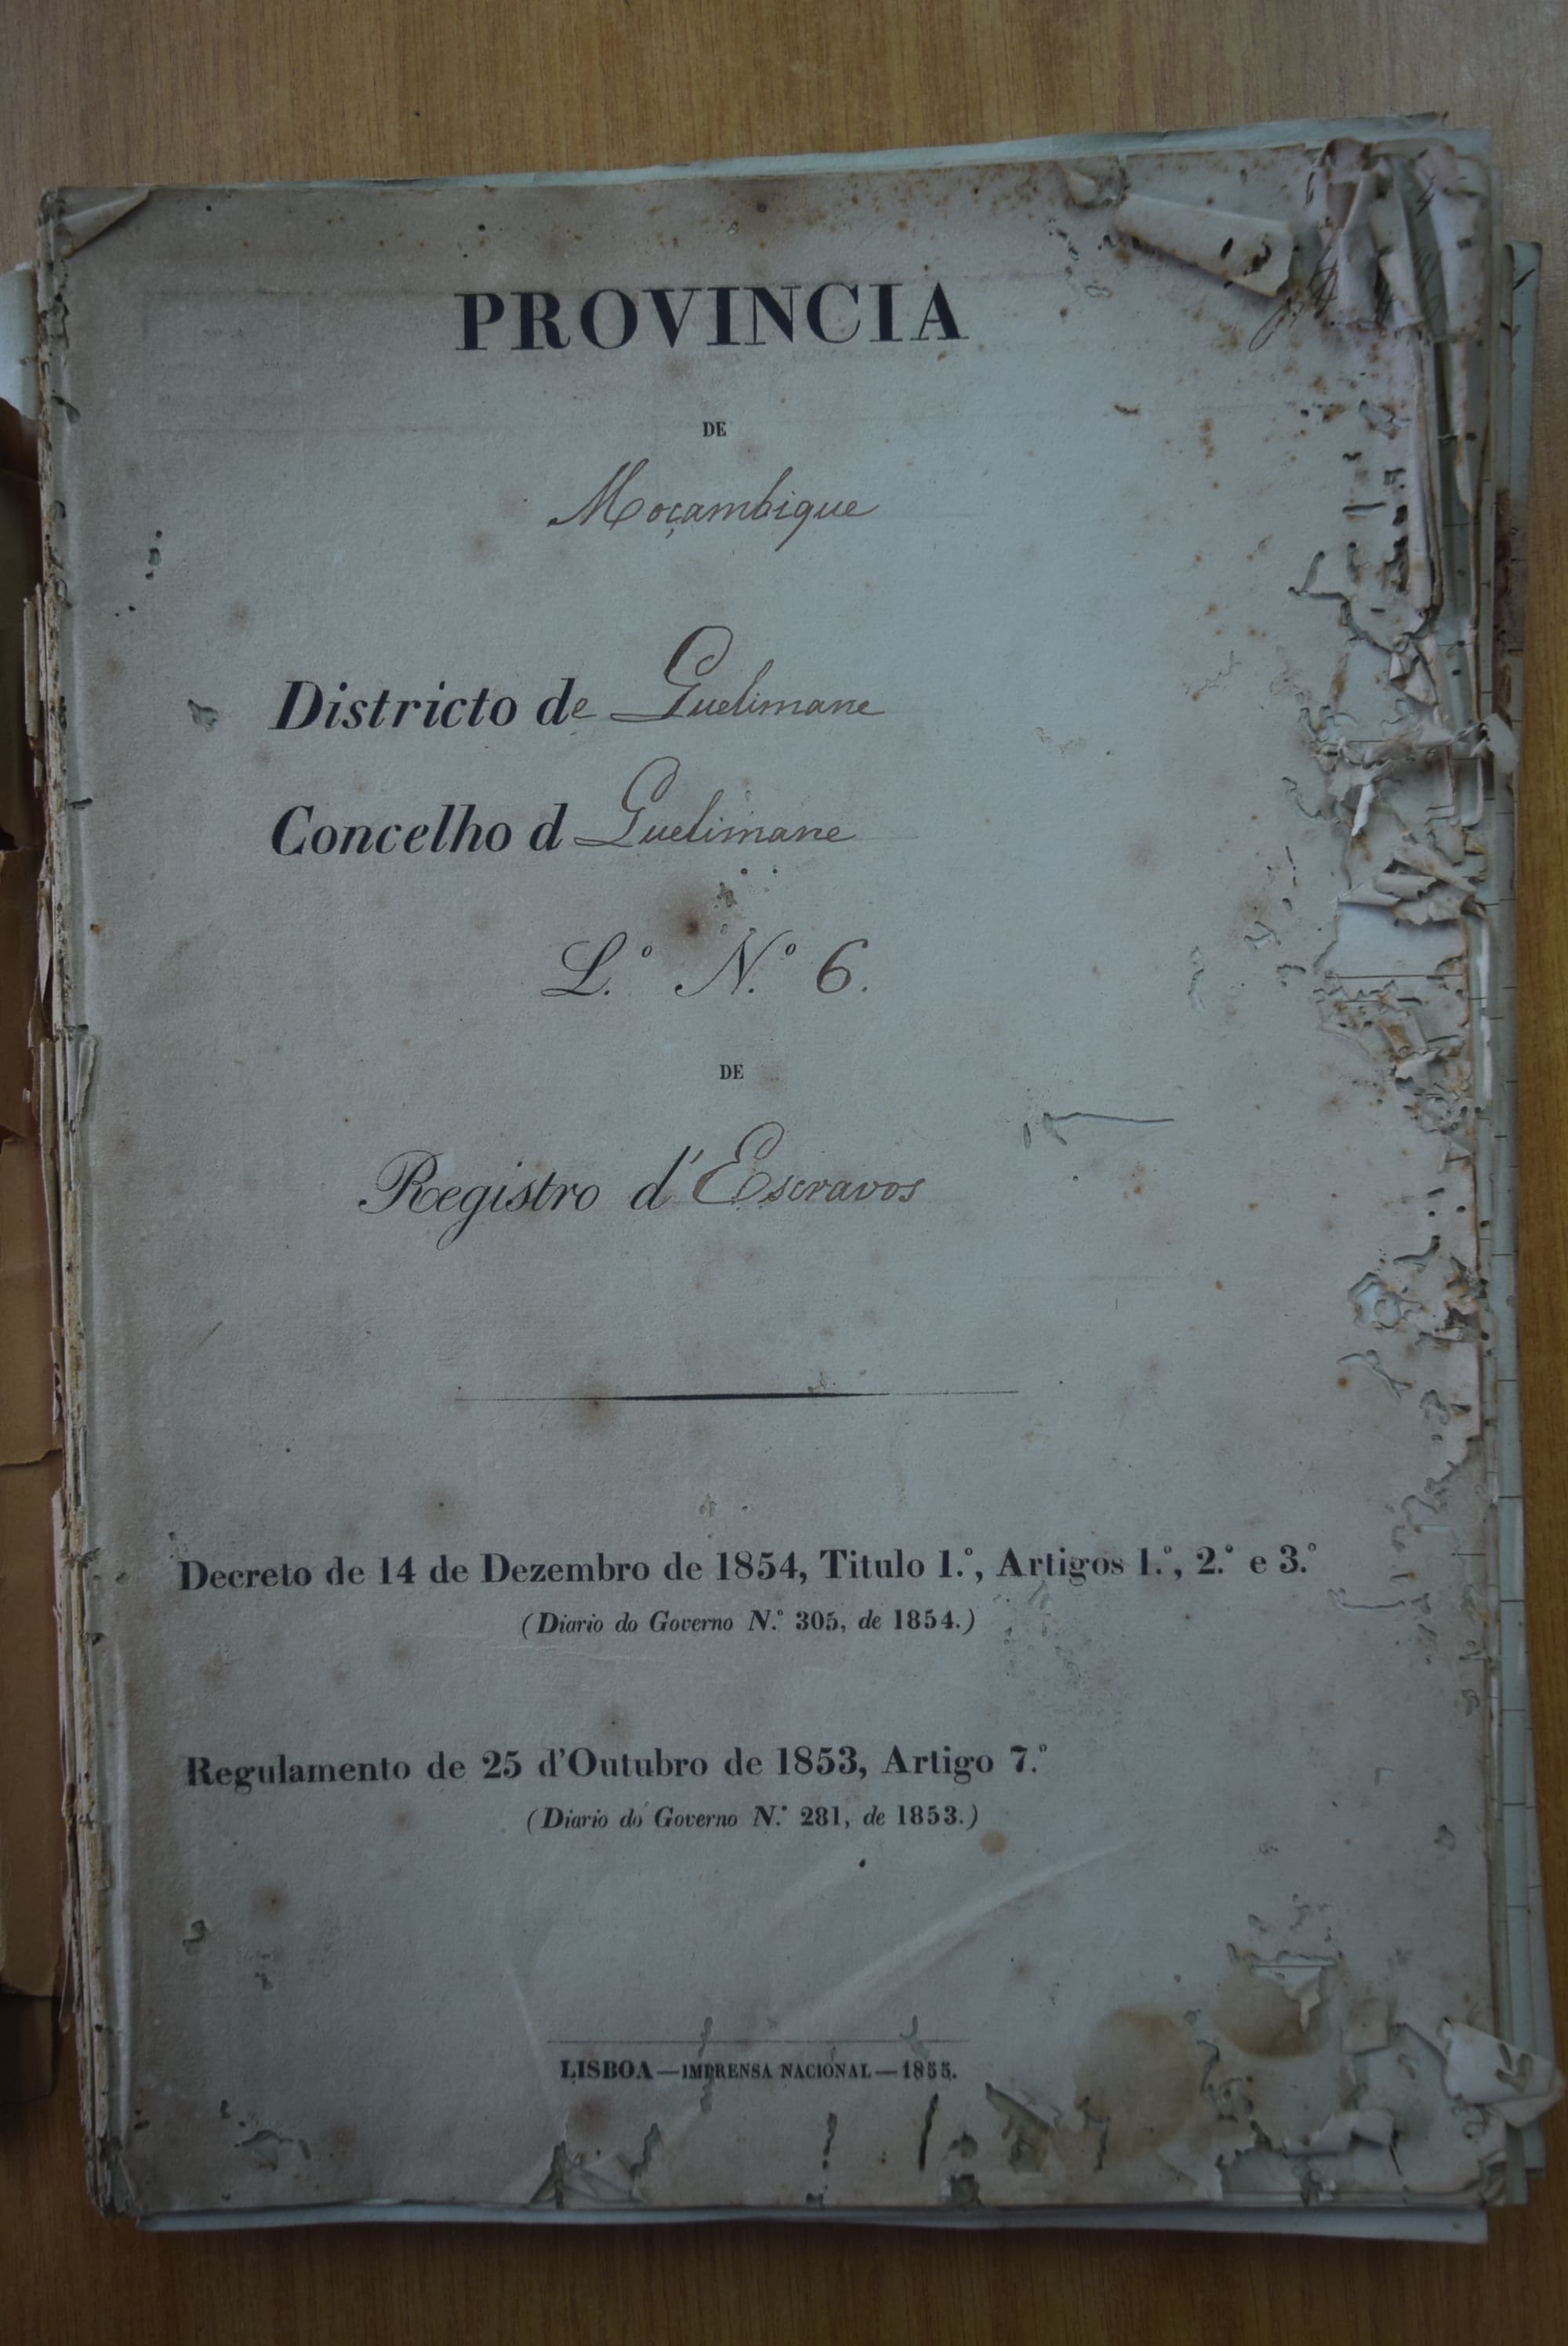 PROVINCIA
DE
Moçambique
Districto de Quelimane
Concelho d Quelimane
L.º N.º 6.
DE
Registro d'Escravos
Decreto de 14 de Dezembro de 1854, Titulo 1.º, Artigos 1.º, 2.º e 3.º
(Diario do Governo N.º 305, de 1854.)
Regulamento de 25 d'Outubro de 1853, Artigo 7.º
(Diario do Governo N.º 281, de 1853.)
LISBOA — IMPRENSA NACIONAL — 1855.